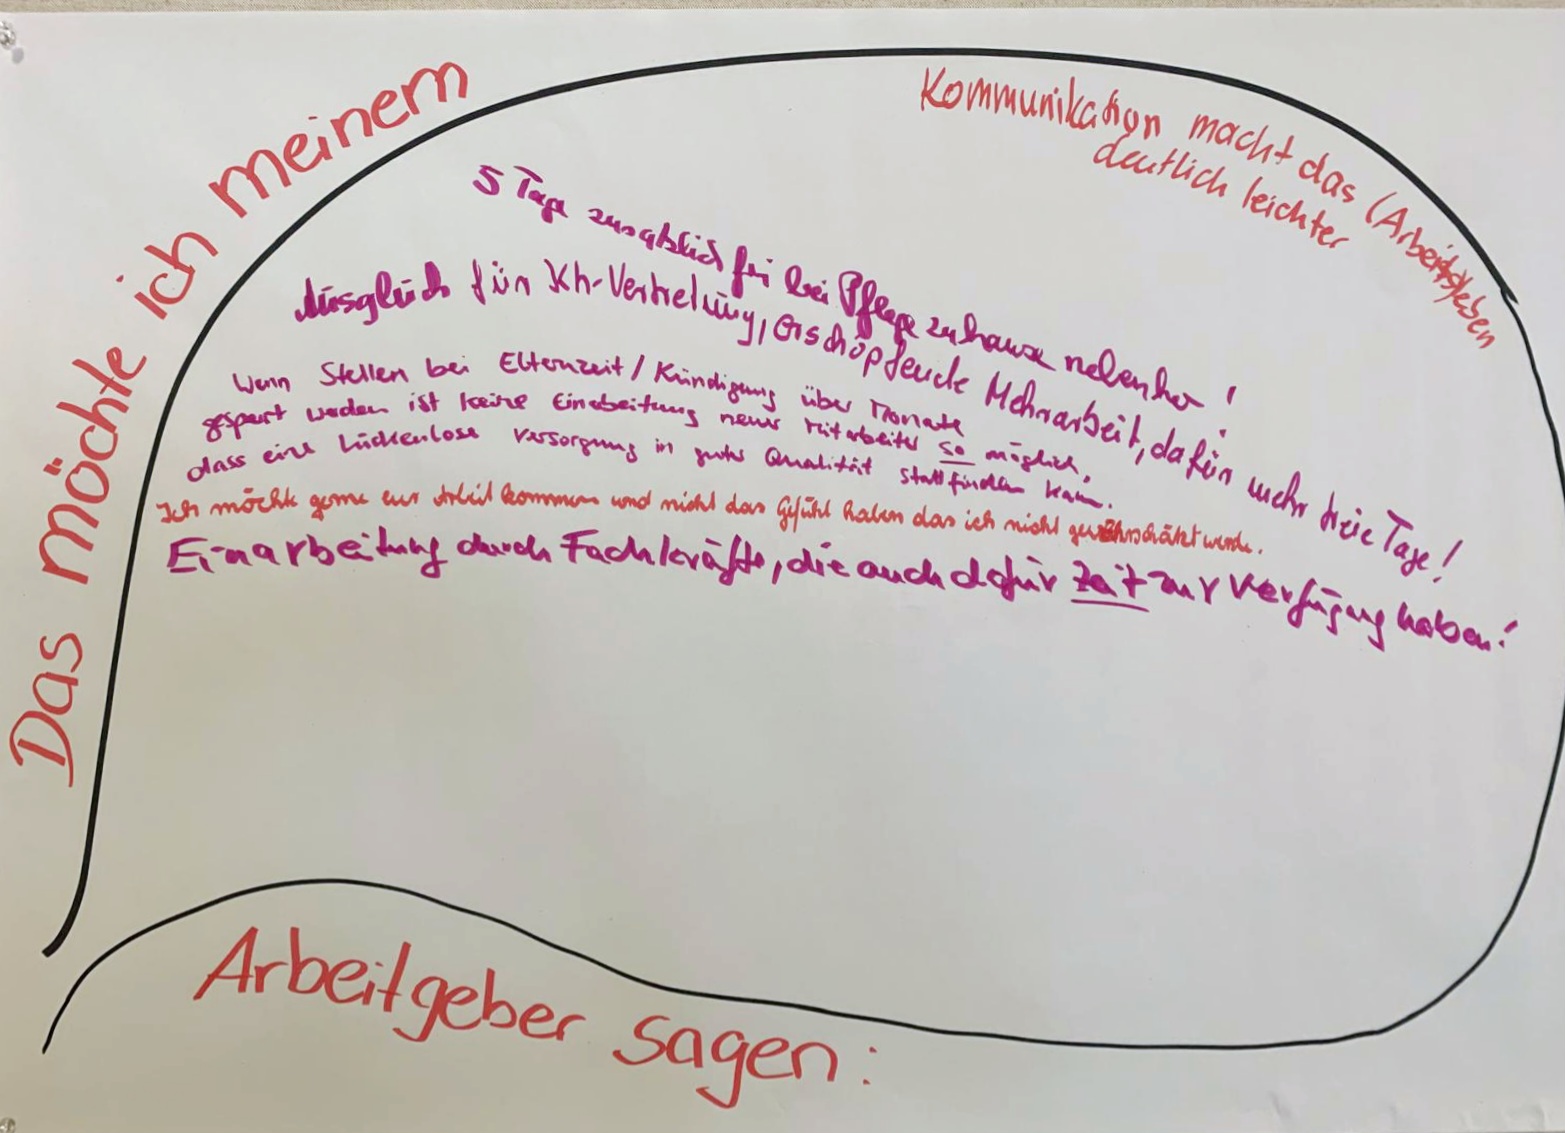 Das möchte ich meinem
Arbeitgeber sagen:
Kommunikation macht das (Arbeits)leben
deutlich leichter
5 Tage zusätzlich frei bei Pflege zuhause nebenher!
Ausgleich für Kh-Vertretung, erschöpfende Mehrarbeit, dafür mehr freie Tage!
Wenn Stellen bei Elternzeit / Kündigung über Monate
gespart werden ist keine Einarbeitung neuer Mitarbeiter so möglich,
dass eine lückenlose Versorgung in guter Qualität stattfinden kann.
Ich möchte gerne zur Arbeit kommen und nicht das Gefühl haben das ich nicht werde.
Einarbeitung durch Fachkräfte, die auch dafür Zeit zur Verfügung haben!